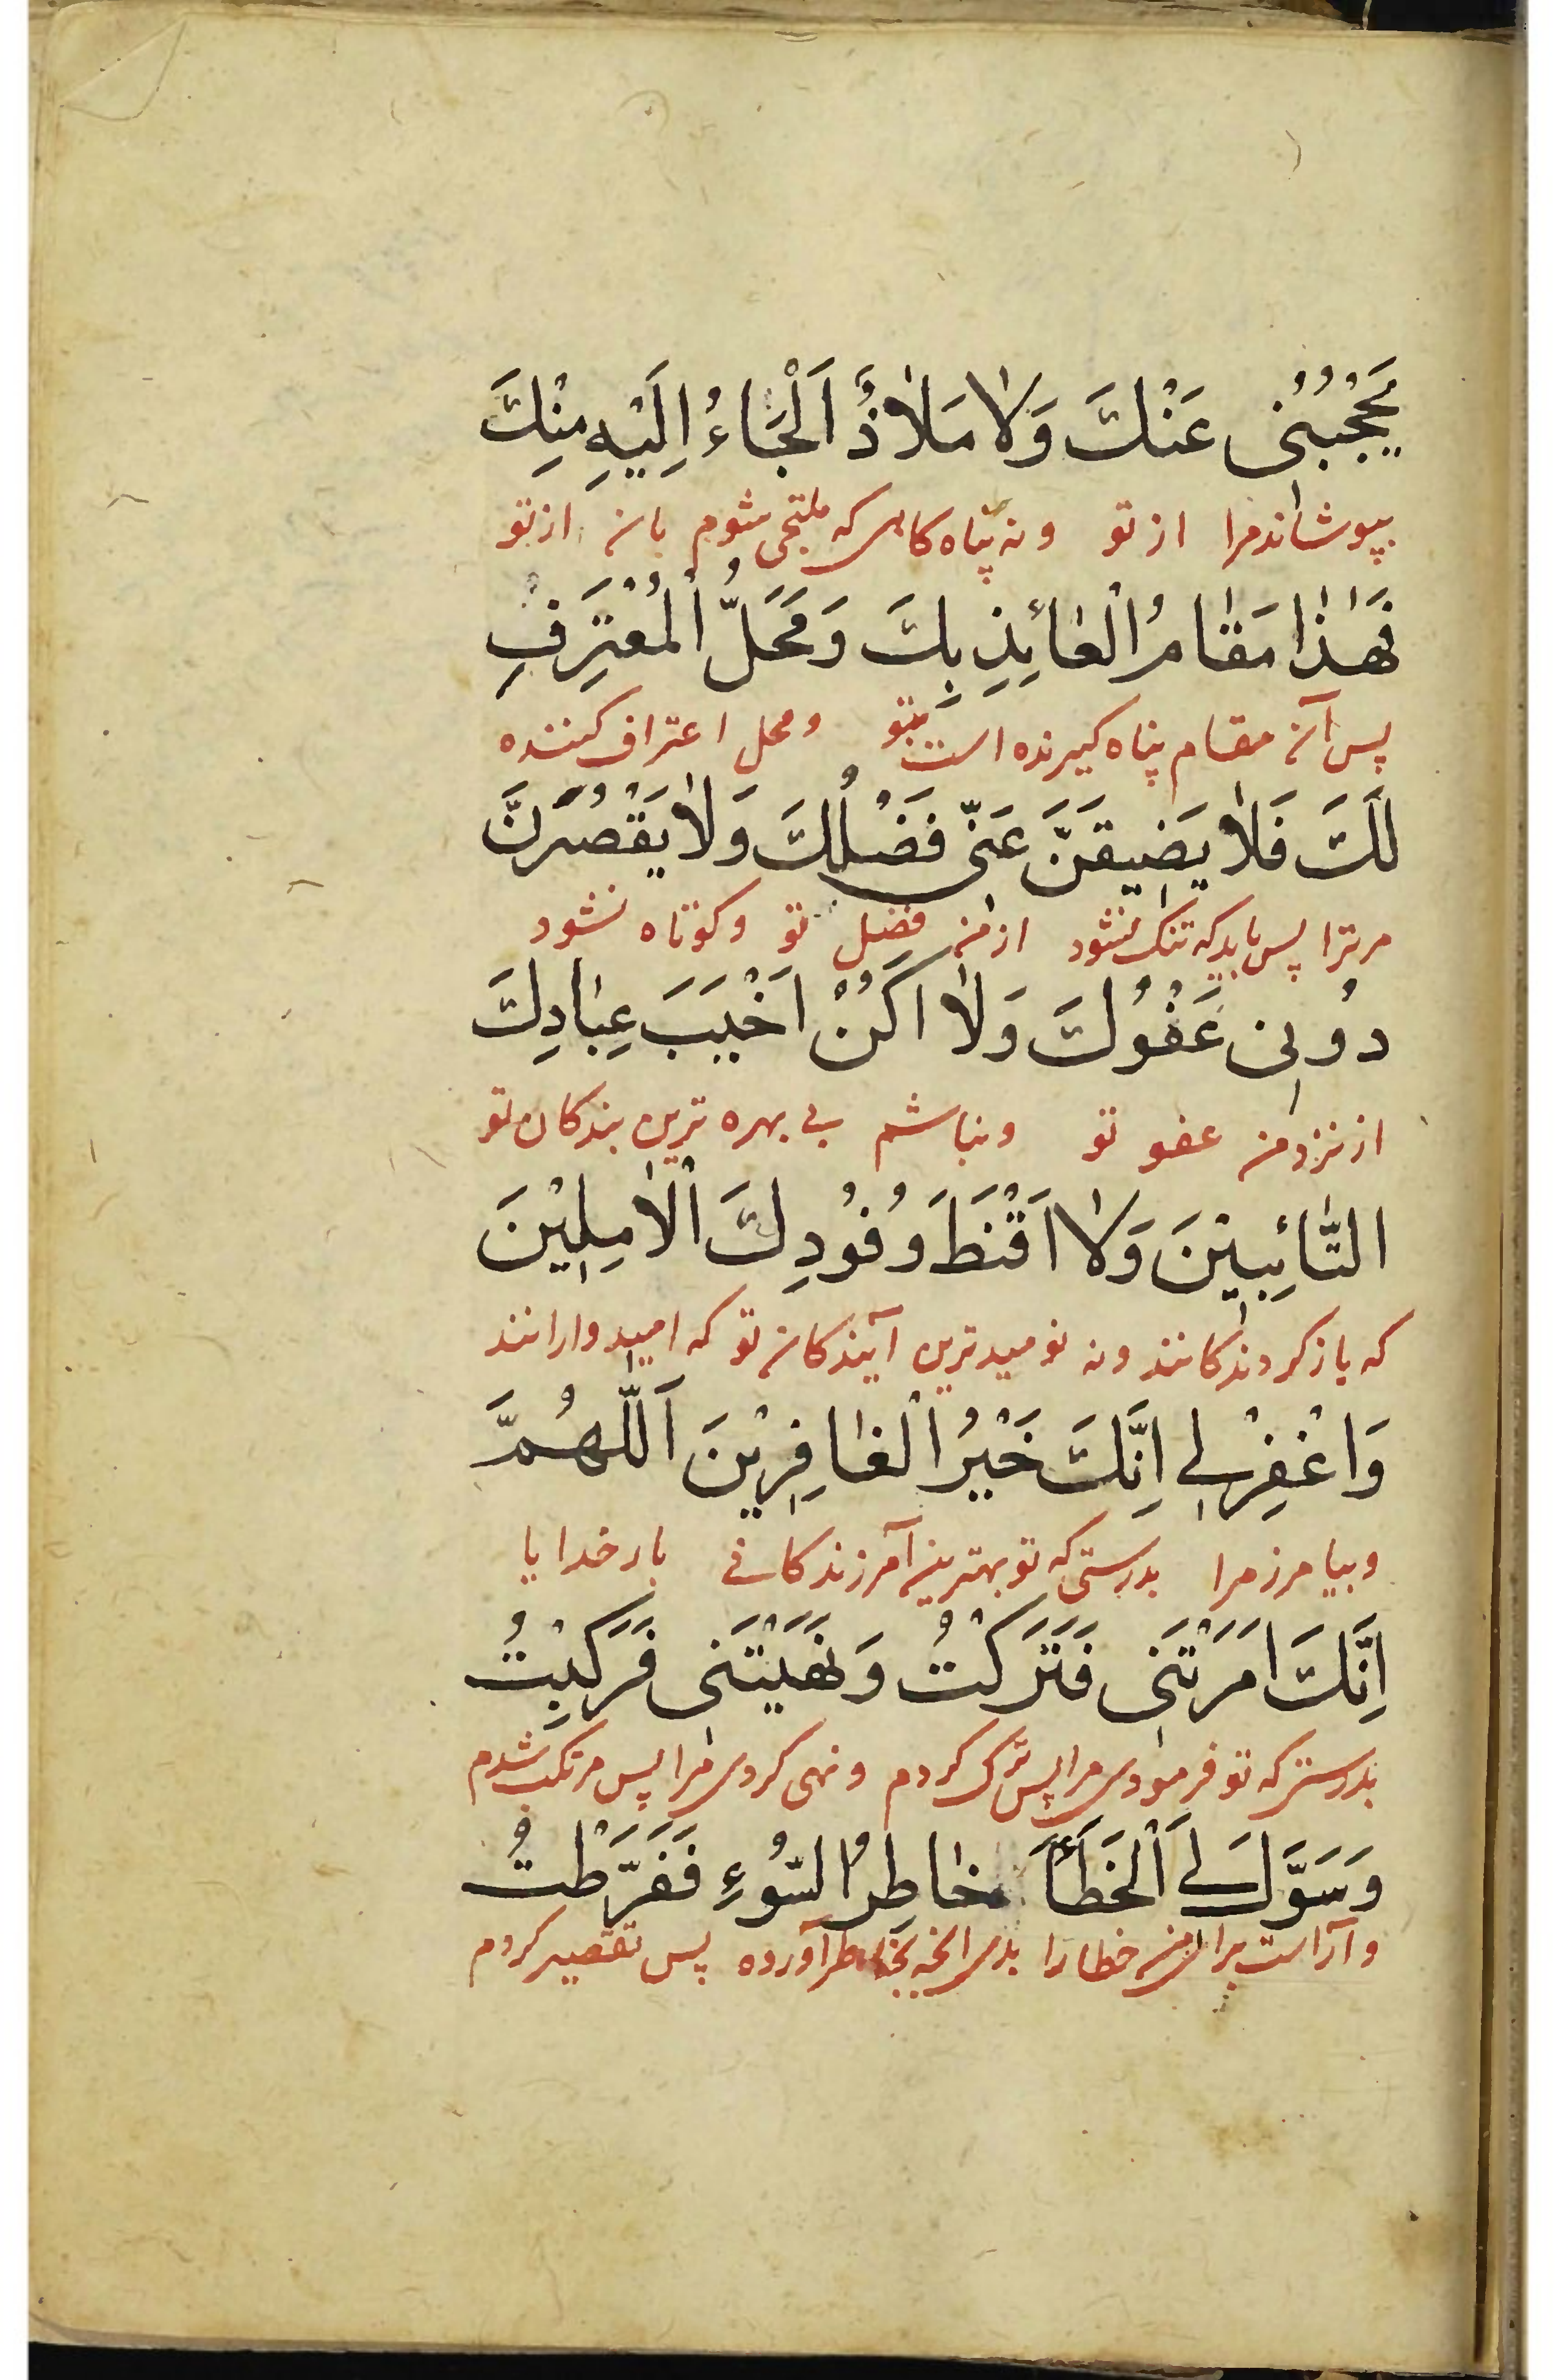 يَحْجُبُنِى عَنْكَ وَلَا مَلَاذٌ اَلْجَاءُ اِلَيْهِ مِنْكَ
بپوشاند مرا از تو و نه پناه کاهی که ملتجی شوم بان از تو
فَهٰذَا مَقَامُ الْعَائِذِ بِكَ وَمَحَلُّ الْمُعْتَرِفِ
پس آن مقام پناه کیرنده است بتو و محل اعتراف کننده
لَكَ فَلَا يَضِيقَنَّ عَنِّى فَضْلُكَ وَلَا يَقْصُرَنَّ
مر ترا پس باید که تنک نشود از من فضل تو و کوتاه نشود
دُونِى عَفْوُكَ وَلَا اَكُنْ اَخْيَبَ عِبَادِكَ
از نزد من عفو تو و نباشم بی بهره ترین بندکان تو
التَّائِبِيْنَ وَلَا اَقْنَطَ وُفُودِكَ الْاٰمِلِيْنَ
که باز کردندکانند و نه نومیدترین آیندکان تو که امیدوارانند
وَاغْفِرْ لِى اِنَّكَ خَيْرُ الْغَافِرِيْنَ اَللّٰهُمَّ
و بیامرز مرا بدرستی که تو بهترین آمرزندکانی بار خدایا
اِنَّكَ اَمَرْتَنِى فَتَرَكْتُ وَنَهَيْتَنِى فَرَكِبْتُ
بدرستی که تو فرمودی مرا پس ترک کردم و نهی کردی مرا پس مرتکب شدم
وَسَوَّلَ لِىَ الْخَطَأَ خَاطِرُ السُّوءِ فَفَرَّطْتُ
و آراست برای من خطا را بدی انچه بخاطر آورده پس تقصیر کردم